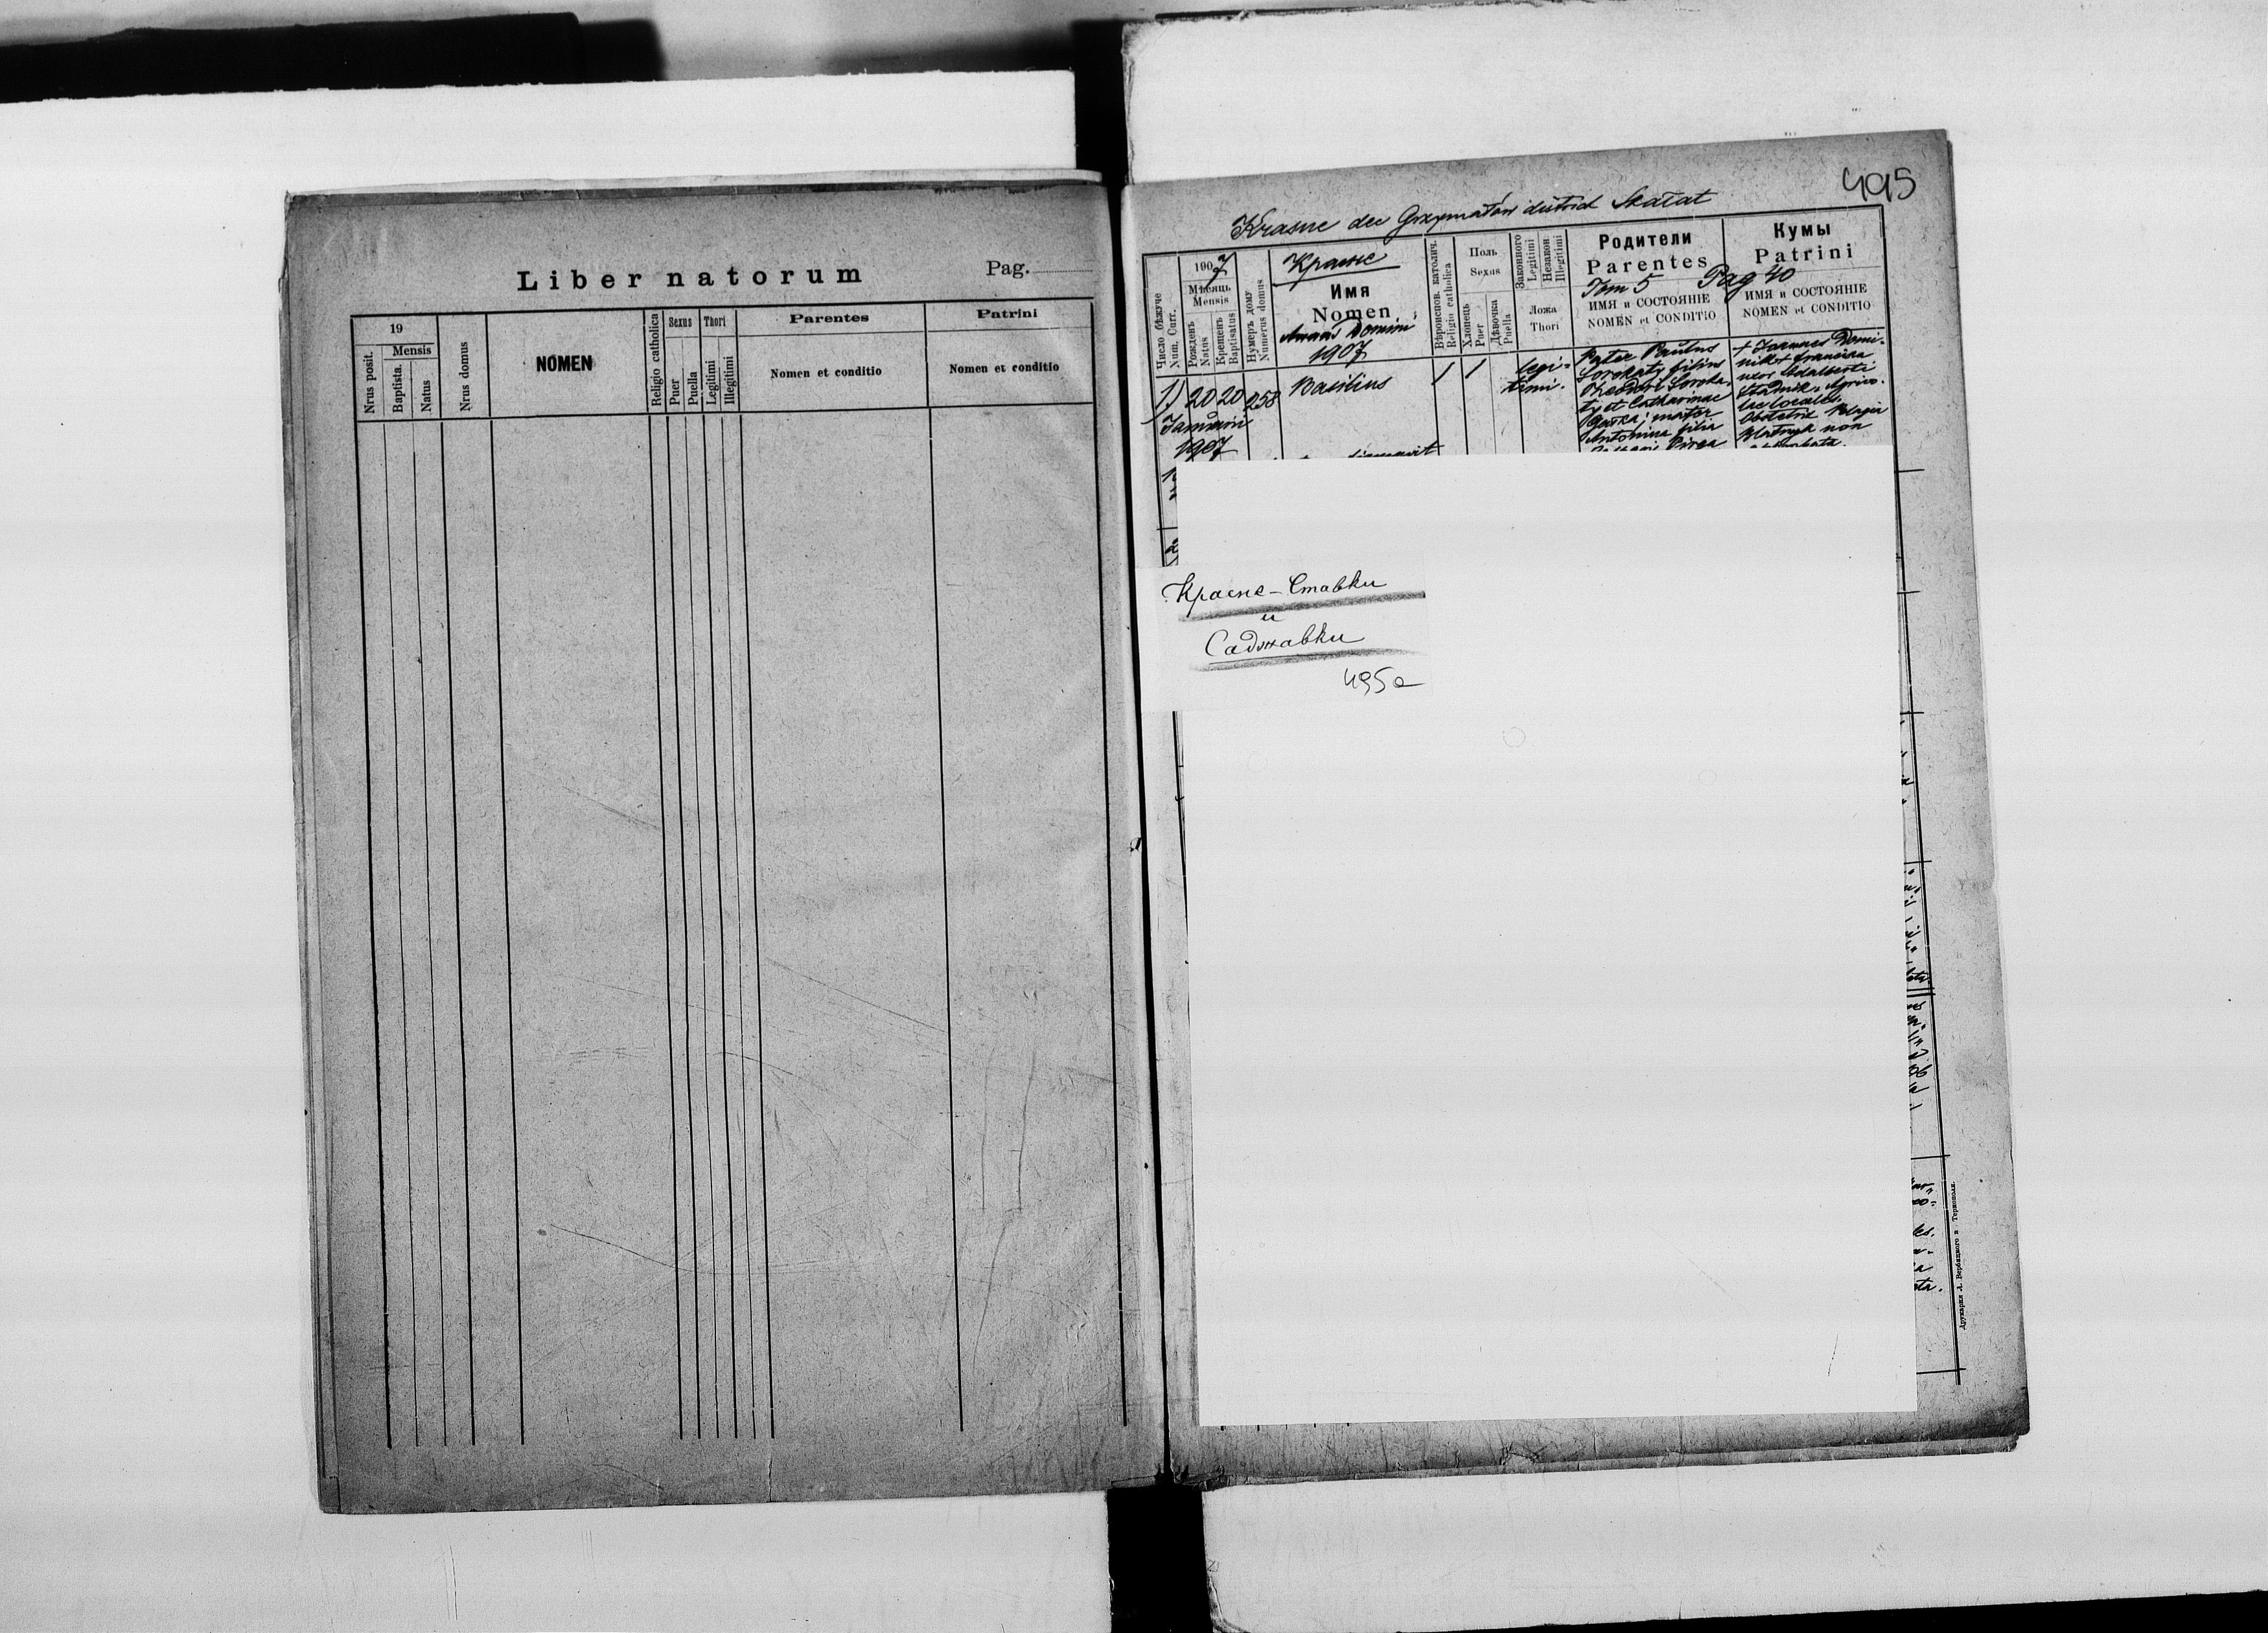 Liber natorum
Pag.
19
Mensis
Nrus posit.
Baptista.
Natus
Nrus domus
NOMEN
Religio catholica
Sexus
Puer
Puella
Thori
Legitimi
Illegitimi
Parentes
Nomen et conditio
Patrini
Nomen et conditio
495
Krasne dec Grzymałów district Skałat
Число бѣжче
Num. Curr.
1907
Мѣсяць
Mensis
Рожденъ
Natus
Крещенъ
Baptisatus
Нумеръ дому
Numerus domus
Красне
Имя
Nomen
Annus Domini
1907
Вѣроиспов. католич.
Religio catholica
Полъ
Sexus
Хлопець
Puer
Дѣвочка
Puella
Законного
Legitimi
Незакон.
Illegitimi
Ложа
Thori
Родители
Parentes
Tom 5
ИМЯ и СОСТОЯНІЕ
NOMEN et CONDITIO
Кумы
Patrini
Pag 40
ИМЯ и СОСТОЯНІЕ
NOMEN et CONDITIO
1) 20 20 258
Januarii
1907
Basilius
1 1
legi-
timi.
Pater Paulus
Sorokaty filius
Theodori Soroka-
ty et Catharinae
mater
Antonina filia
+ Joannes Domi-
nik + Francisca
uxor Adalberti
Stadnik, agrico-
lae locales.
Obstetrix Pelagia
non
Красне-Ставки
и
Саджавки
495а
Друкарня Л. Вербицкого в Тернополи.